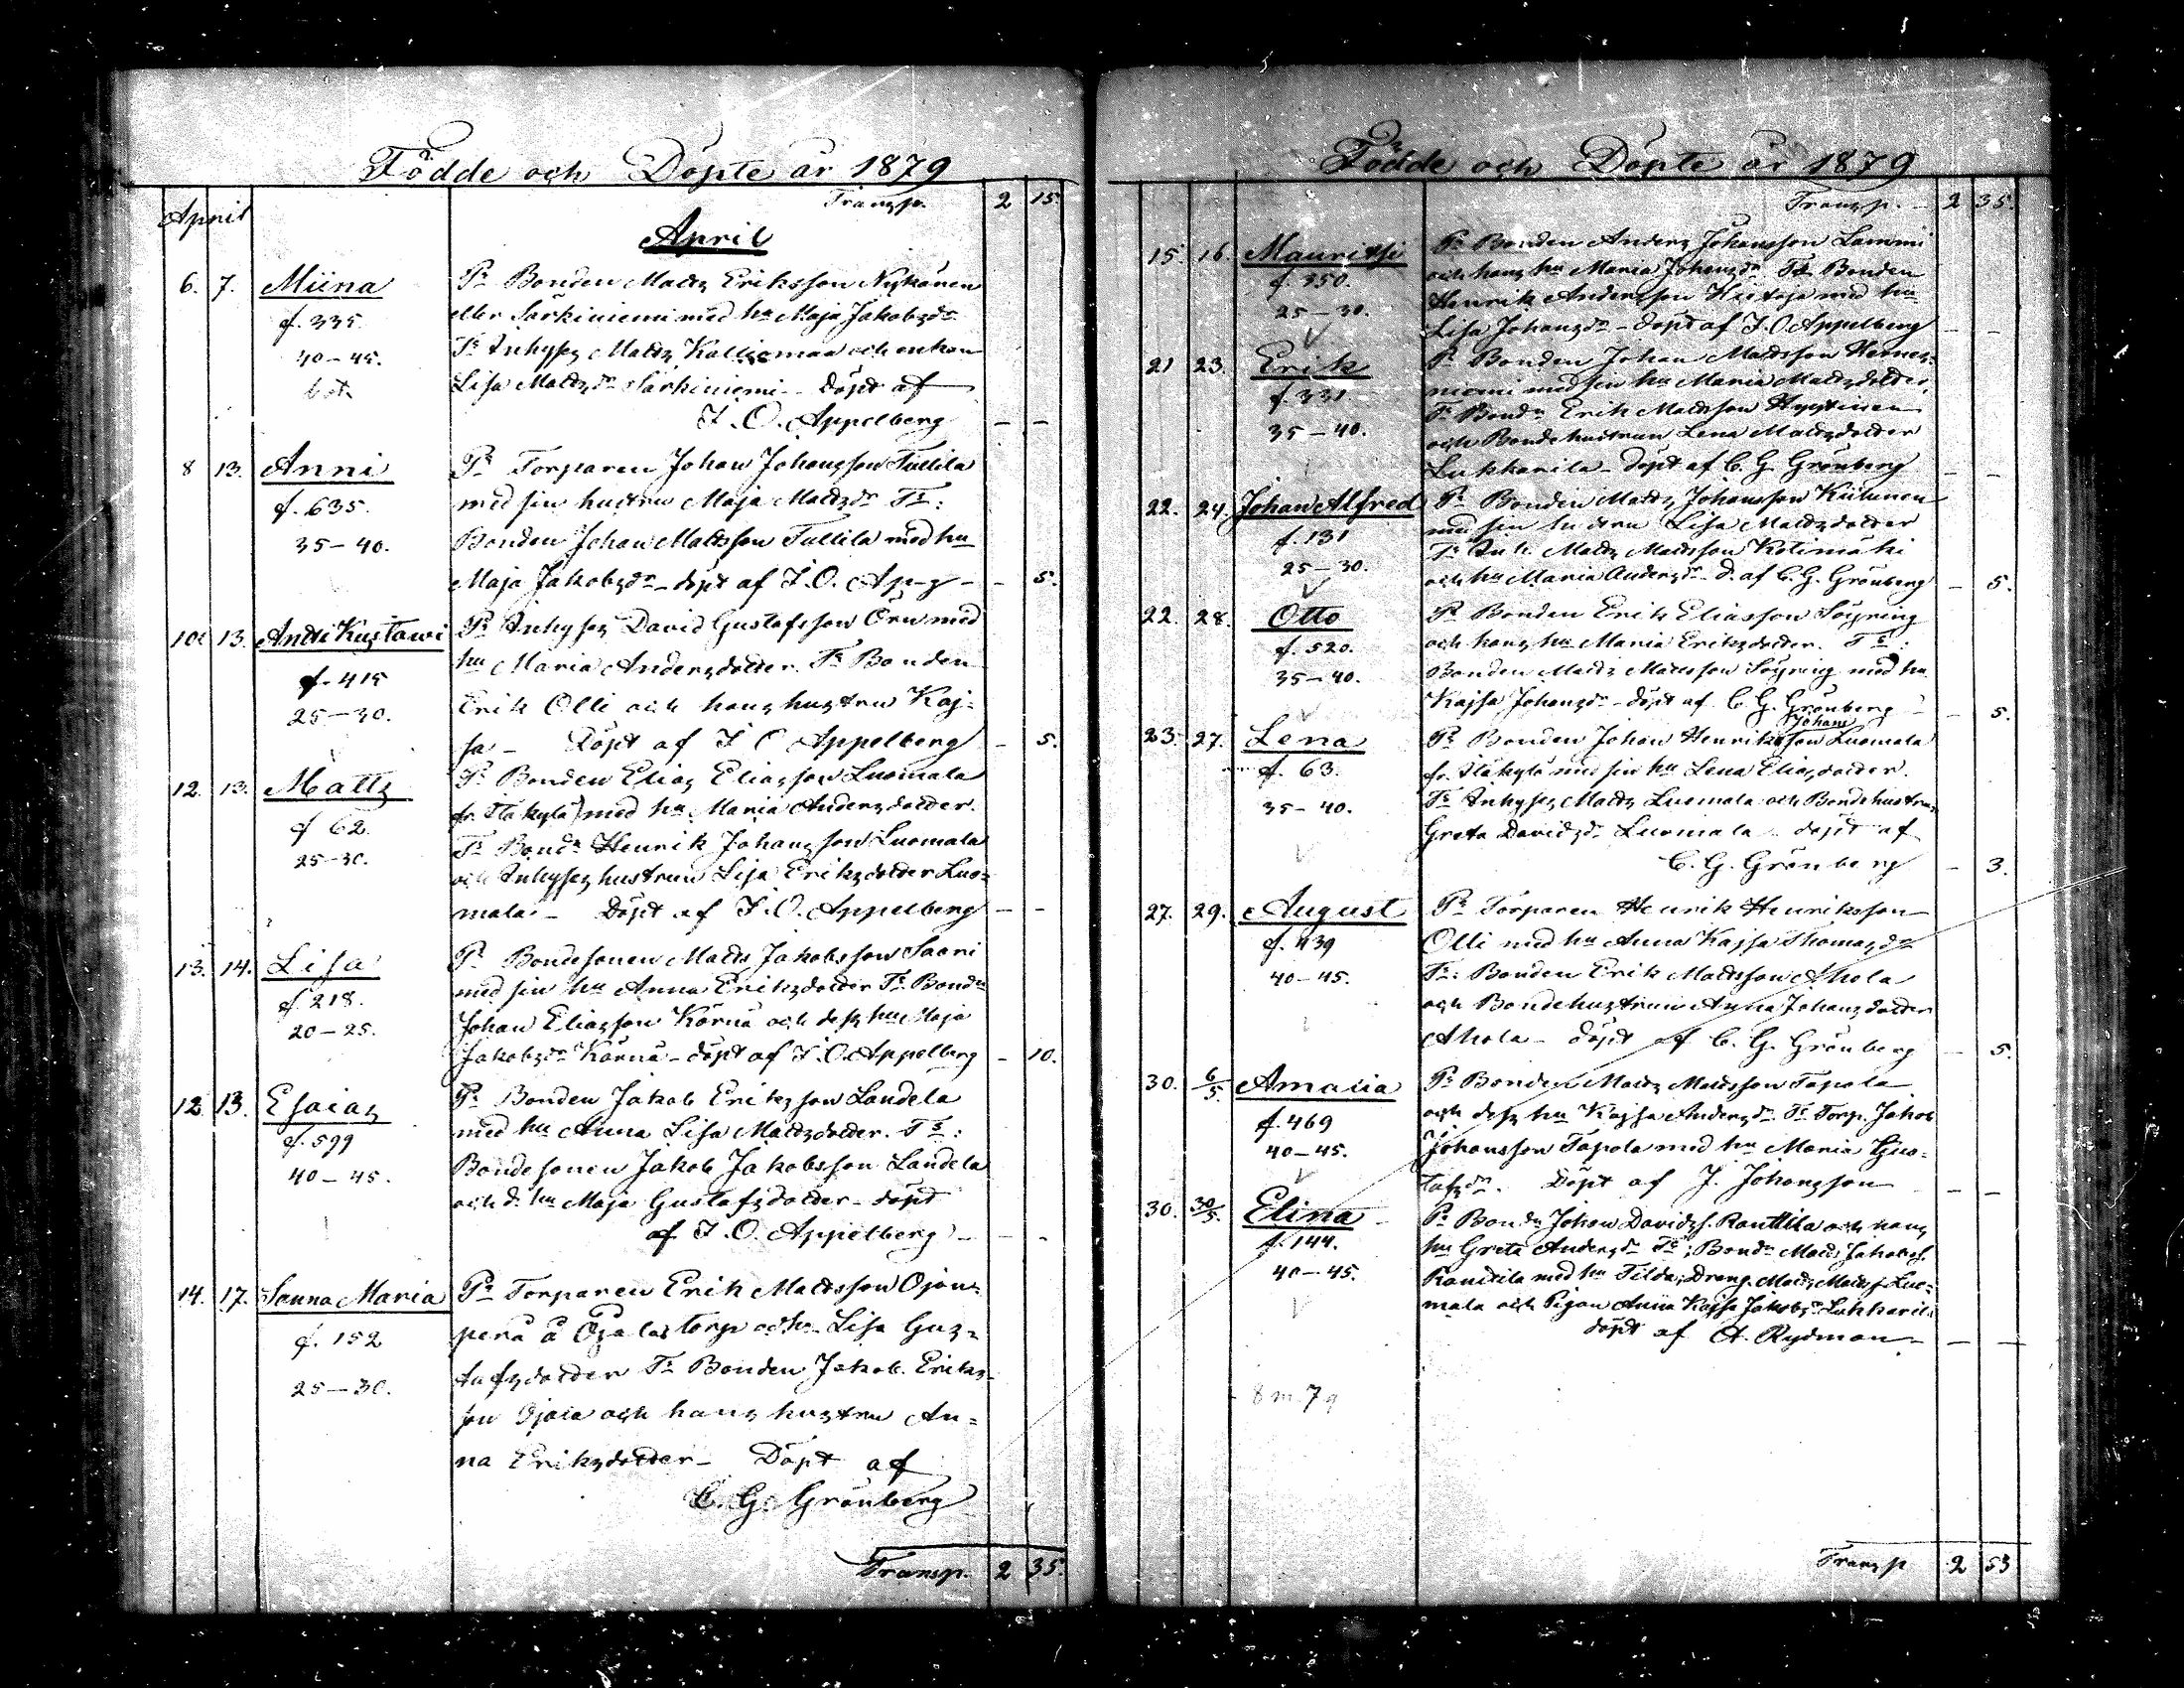 Födde och Döpte år 1879
Transp. 2 15
April
April
6. 7. Miina Pr Bonden Matts Eriksson Nykänen
f. 335. eller Särkiniemi med hu Maja Jakobsdr
40-45. Tr Inhyses Matts och enkan
Lisa Mattsdr Särkiniemi - Döpt af
I. O. Appelberg - -
8 13. Anni Pr Torparen Johan Johansson Tullila
f. 635. med sin hustru Maja Mattsdr Tr:
35-40. Bonden Johan Mattsson Tullila med hu
Maja Jakobsdr - döpt af I. O. Ap-g - - 5.
10. 13. Antti Kustawi Pr Inhyses David Gustafsson Örn med
f. 415 hu Maria Andersdotter. Tr Bonden
25-30. Erik Olli och hans hustru Kaj-
sa - Döpt af I O Appelberg - 5.
12. 13. Matts Pr Bonden Elias Eliasson Luomala
f 62. fr. Ylikylä) med hu Maria Andersdotter.
25-30. Tr Bondn Henrik Johansson Luomala
och Inhyses hustrun Lisa Eriksdotter Luo-
mala. - Döpt af I. O. Appelberg - -
13. 14. Lisa Pr Bondesonen Matts Jakobsson Saari
f. 218. med sin hu Anna Eriksdotter Tr Bondn
20-25. Johan Eliasson Körnä och dess hu Maja
Jakobsdr Körnä - döpt af I. O. Appelberg - 10.
12 13. Esaias Pr Bonden Jakob Eriksson Landela
f. 599 med hu Anna Lisa Mattsdotter. Tr:
40-45. Bondesonen Jakob Jakobsson Landela
och d. hu Maja Gustafsdotter - döpt
af I. O. Appelberg - - -
14. 17. Sanna Maria Pr Torparen Erik Mattsson Ojan-
f. 152 perä å Ojala torp och hu Lisa Gus-
25-30. tafsdotter Tr Bonden Jakob Eriks-
son Ojala och hans hustru An-
na Eriksdotter - Döpt af
C. G. Grönberg
Transp. 2 35.
Födde och Döpte år 1879
Transp. - 2 35.
15. 16. Mauritsi Pr Bonden Anders Johansson Lammi
f. 350. och hans hu Maria Johansdr Tr Bonden
25-30. Henrik Andersson med hu
Lisa Johansdr - döpt af I. O. Appelberg - -
21 23. Erik Pr Bonden Johan Mattsson Hernes-
f. 331 niemi med sin hu Maria Mattsdotter.
35-40. Tr Bondn Erik Mattsson Hyytinen
och Bondehustrun Lena Mattsdotter
Lukkarila - döpt af C. G. Grönberg - -
22. 24. Johan Alfred Pr Bonden Matts Johansson Kiilunen
f. 131 med sin hustru Lisa Mattsdotter
25-30. Tr Inh. Matts Mattsson Kotimäki
och hu Maria Andersdr - d. af C. G. Grönberg - 5.
22. 28. Otto Pr Bonden Erik Eliasson Söyring
f. 520. och hans hu Maria Eriksdotter. Tr:
35-40. Bonden Matts Mattsson Söyring med hu
Kajsa Johansdr - döpt af C. G. Grönberg - - 5.
Johans
23. 27. Lena Pr Bonden Johan Henriksson Luomala
f. 63. fr. Ylikylä med sin hu Lena Eliasdotter.
35-40. Tr Inhyses Matts Luomala och Bondehustrun
Greta Davidsdr Luomala - döpt af
C. G. Grönberg - 3.
27. 29. August Pr Torparen Henrik Henriksson
f. 439 Olli med hu Anna Kajsa Thomasdr
40-45. Tr: Bonden Erik Mattsson Ahola
och Bondehustrun Anna Johansdotter
Ahola - döpt af C. G. Grönberg - 5.
30. 6/5. Amalia Pr Bonden Matts Mattsson Tapola
f. 469 och dess hu Kajsa Andersdr Tr Torp. Jakob
40-45. Johansson Tapola med hu Maria Gus-
tafsdr. Döpt af J. Johansson - -
30. 30/5. Elina Pr Bondn Johan Davids. Ranttila och hans
f. 144. hu Greta Andersdr Tr: Bondn Matts Jakobs.
40-45. Ranttila med hu Tilda; Dräng. Matts Matts. Luo-
mala och Pigan Anna Kajsa Jakobsdr Lukkarila
döpt af A. Rydman - - -
8 m. 7 q
Transp 2 53